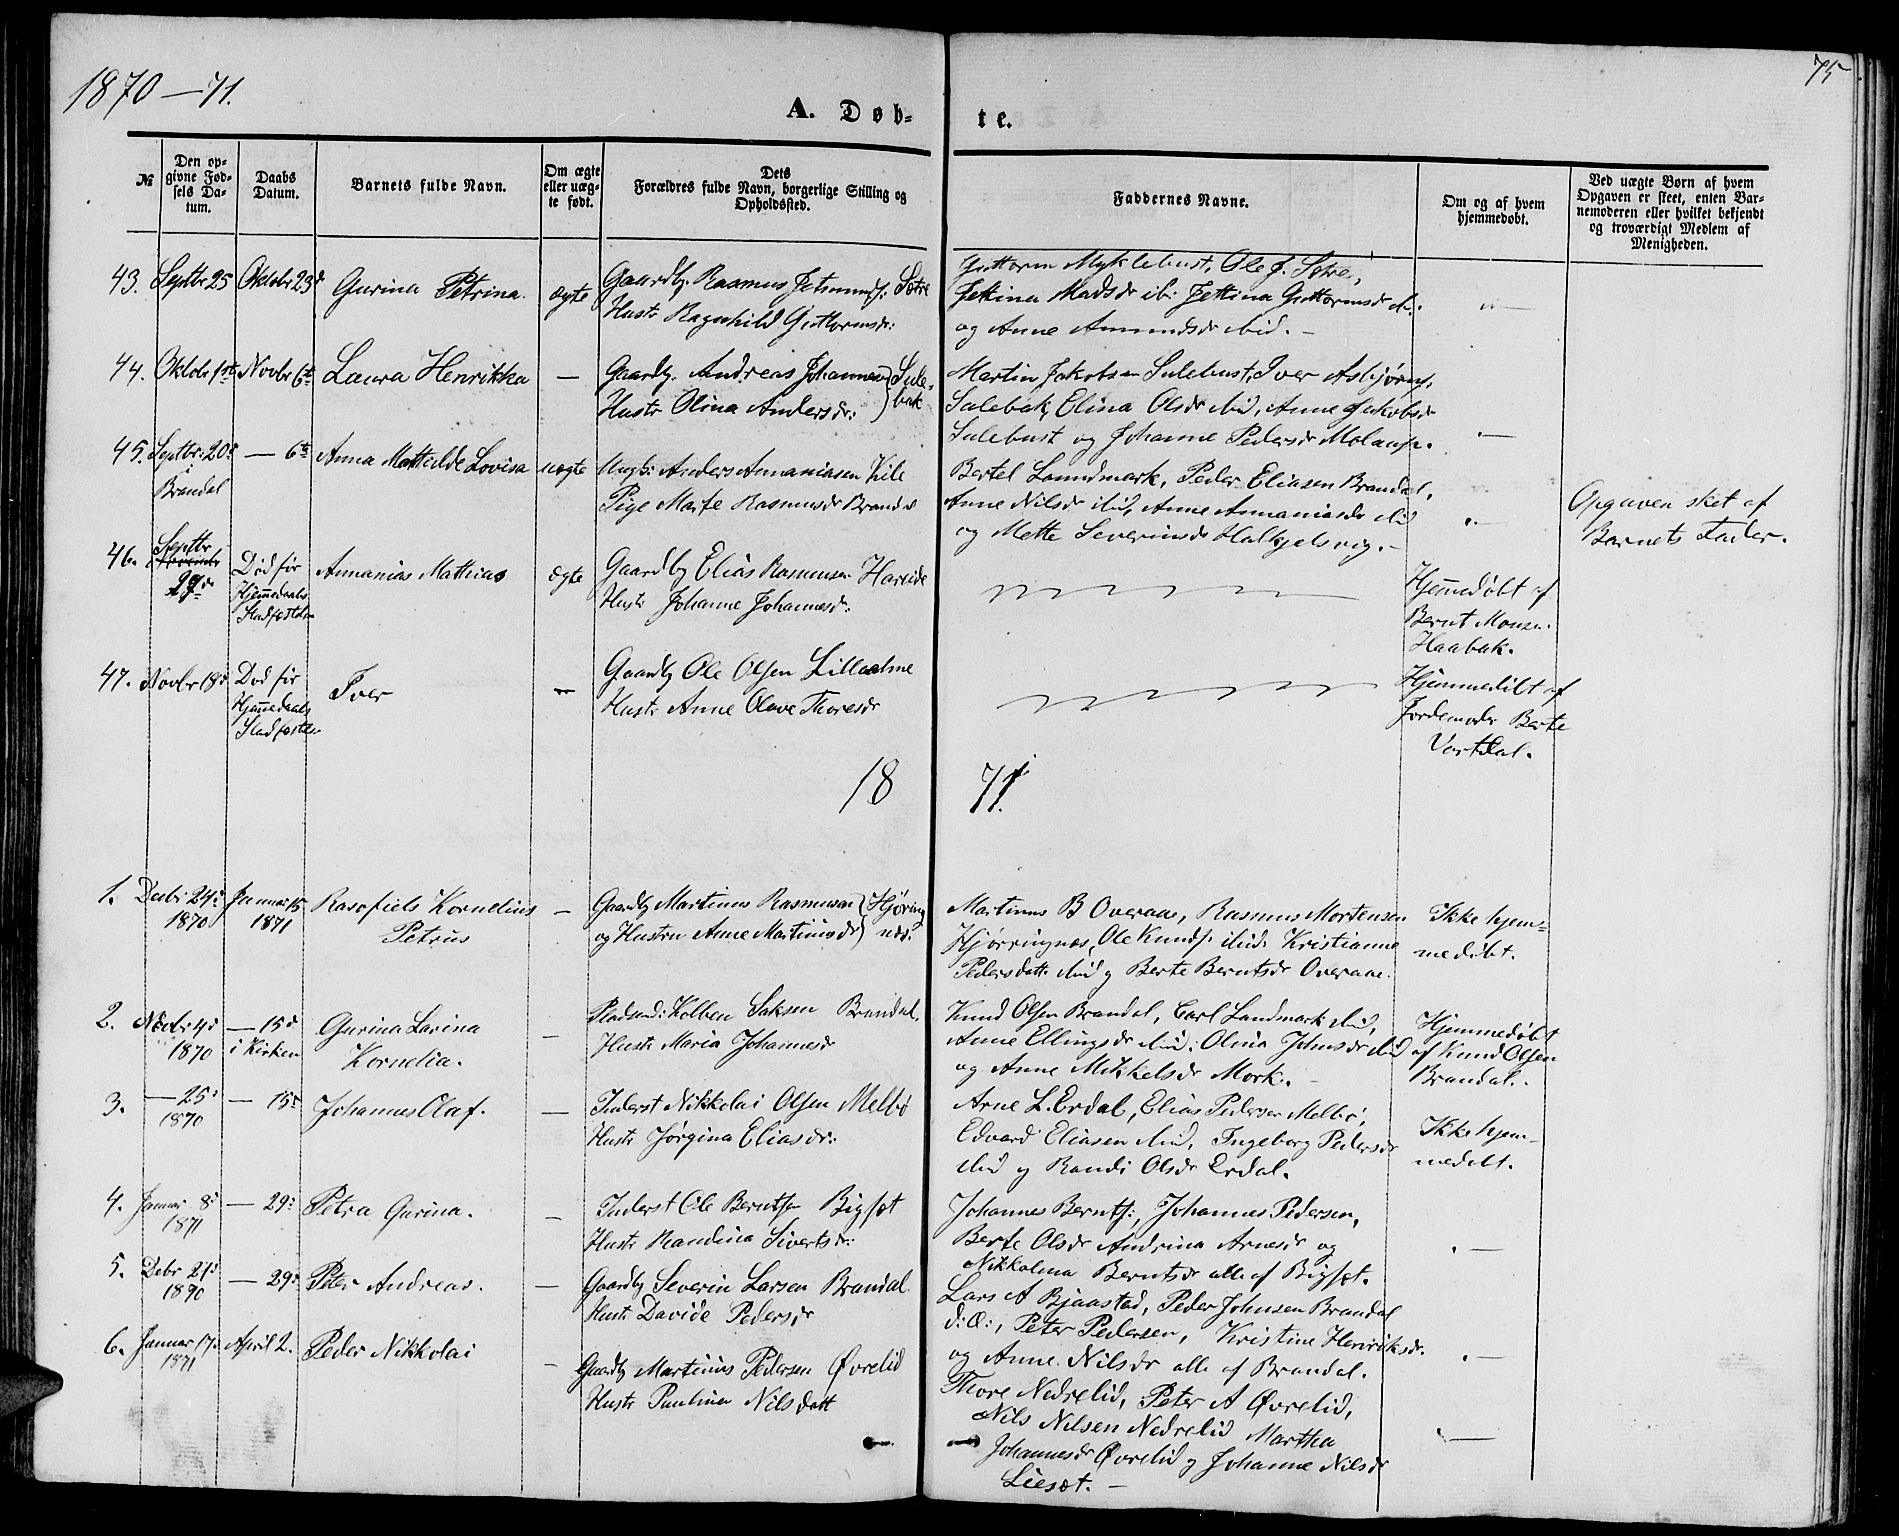 1870—71.
75
A. Døb=
te.
№
Den op=
givne Fød=
sels Da=
tum.
Daabs
Datum.
Barnets fulde Navn.
Om ægte
eller uæg=
te født.
Dets
Forældres fulde Navn, borgerlige Stilling og
Opholdssted.
Faddernes Navne.
Om og af hvem
hjemmedøbt.
Ved uægte Børn af hvem
Opgaven er skeet, enten Bar=
nemoderen eller hvilket bekjendt
og troværdigt Medlem af
Menigheden.
43. Septbr 25 Oktobr 23d Gurina Petrina. ægte
Gaardb. Rasmus Sætre
Hustr Ragnhild Guttormsdr:
Guttorm Myklebust, Ole J. Sætre,
Jettina Madsdr ib: Jettina Guttormsdr ib.
og Anne Amundsdr ibid. —
44. Oktobr 1ste Novbr 6te Laura Henrikka —
Gaardb. Andreas Johannesen Sule-
Hustr Olina Andersdr: bak
Martin Jakobsen Sulebust, Iver Asbjørns.
Sulebak, Elina Olsdr ibid, Anne Jakobsdr
Sulebust og Johanne Pedersdr
45. Septbr: 20de — 6te Anna Mathilde Lovisa uægte
i
Brandal
Ungk: Anders Annaniasen Kile
Pige Marte Rasmusdr Brandal
Bertel Landmark, Peder Eliasen Brandal,
Anne Nilsdr ibid, Anne Annaniasdr ibid
og Mette Severinsdr Halkjelsvig. —
Opgaven sket af
Barnets Fader.
46. Septbr
29de
Død før
Hjemedaabs
Stadfæstelsen
Annanias Mathias ægte
Gaardb Elias Rasmusen Hareide
Hustr Johanne Johannesdr:
Hjemedøbt af
Bernt Monsen
Haabak.
47. Novbr 18de
Død før
Hjemedaabs
Stadfæstelsen
Iver —
Gaardb Ole Olsen Lillealme
Hustr Anne Olave Thoresdr
Hjemmedøbt af
Jordemoder Berte
Vartdal.
18 71.
1. Decbr 24de Januar 15
1870 1871
Rasofiels Kornelius
Petrus —
Gaardb Martinus Rasmusen Hjøring
og Hustru Anne Martinusdr næs.
Martinus B Overaae, Rasmus Mortensen
Hjørringnæs, Ole Knuds. ibid. Kristianne
Pedersdatt ibid g Berte Berntsdr Overaae.
Ikke hjem=
medøbt.
2. Novbr 4de — 15de
1870 i Kirken
Gurina Larina
Kornelia. —
Pladsmd: Kolben Saksen Brandal.
Hustr Maria Johannesdr
Knud Olsen Brandal, Carl Landmark ibid,
Anne Ellingsdr ibid: Olina Johnsdr ibid
og Anne Mikkelsdr Mork. —
Hjemmedøbt
af Knud Olsen
Brandal.
3. — 25de — 15de
1870
Johannes Olaf. —
Inderst Nikkolai Olsen Melbø
Hustr Jørgina Eliasdr:
Arne L. Erdal, Elias Pedersen Melbø,
Edvard Eliasen ibid, Ingeborg Pedersdr
ibid g Randi Olsdr Erdal.
Ikke hjem-
medøbt.
4. Januar 8de — 29de
1871
Petra Gurina. —
Inderst Ole Berntsen Bigset
Hustr Randina Sivertsdr:
Johannes Bernts:, Johannes Pedersen,
Berte Olsdr Andrina Arnesdr og
Nikkolina Berntsdr alle af Bigset.
5. Debr 21de — 29de
1890
Peter Andreas. —
Gaardb Severin Larsen Brandal.
Hustr Davide Pedersdr
Lars A Bjaastad, Peder Johnsen Brandal
d: Æ:, Peter Pedersen, Kristine Henriksdr.
og Anne Nilsdr alle af Brandal.
6. Januar 17de April 2.
1871
Peder Nikkolai —
Gaardb Martinus Pedersen Øvrelid
Hustr Paulina Nilsdatt
Thore Nedrelid, Peter A Øvrelid,
Nils Nilsen Nedrelid Martha
Johannesdr Øvrelid g Johanne Nilsdr
Liesæt. —